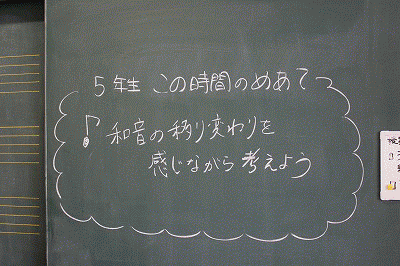 5年生 この時間のめあて
和音の移り変わりを
感じながら考えよう